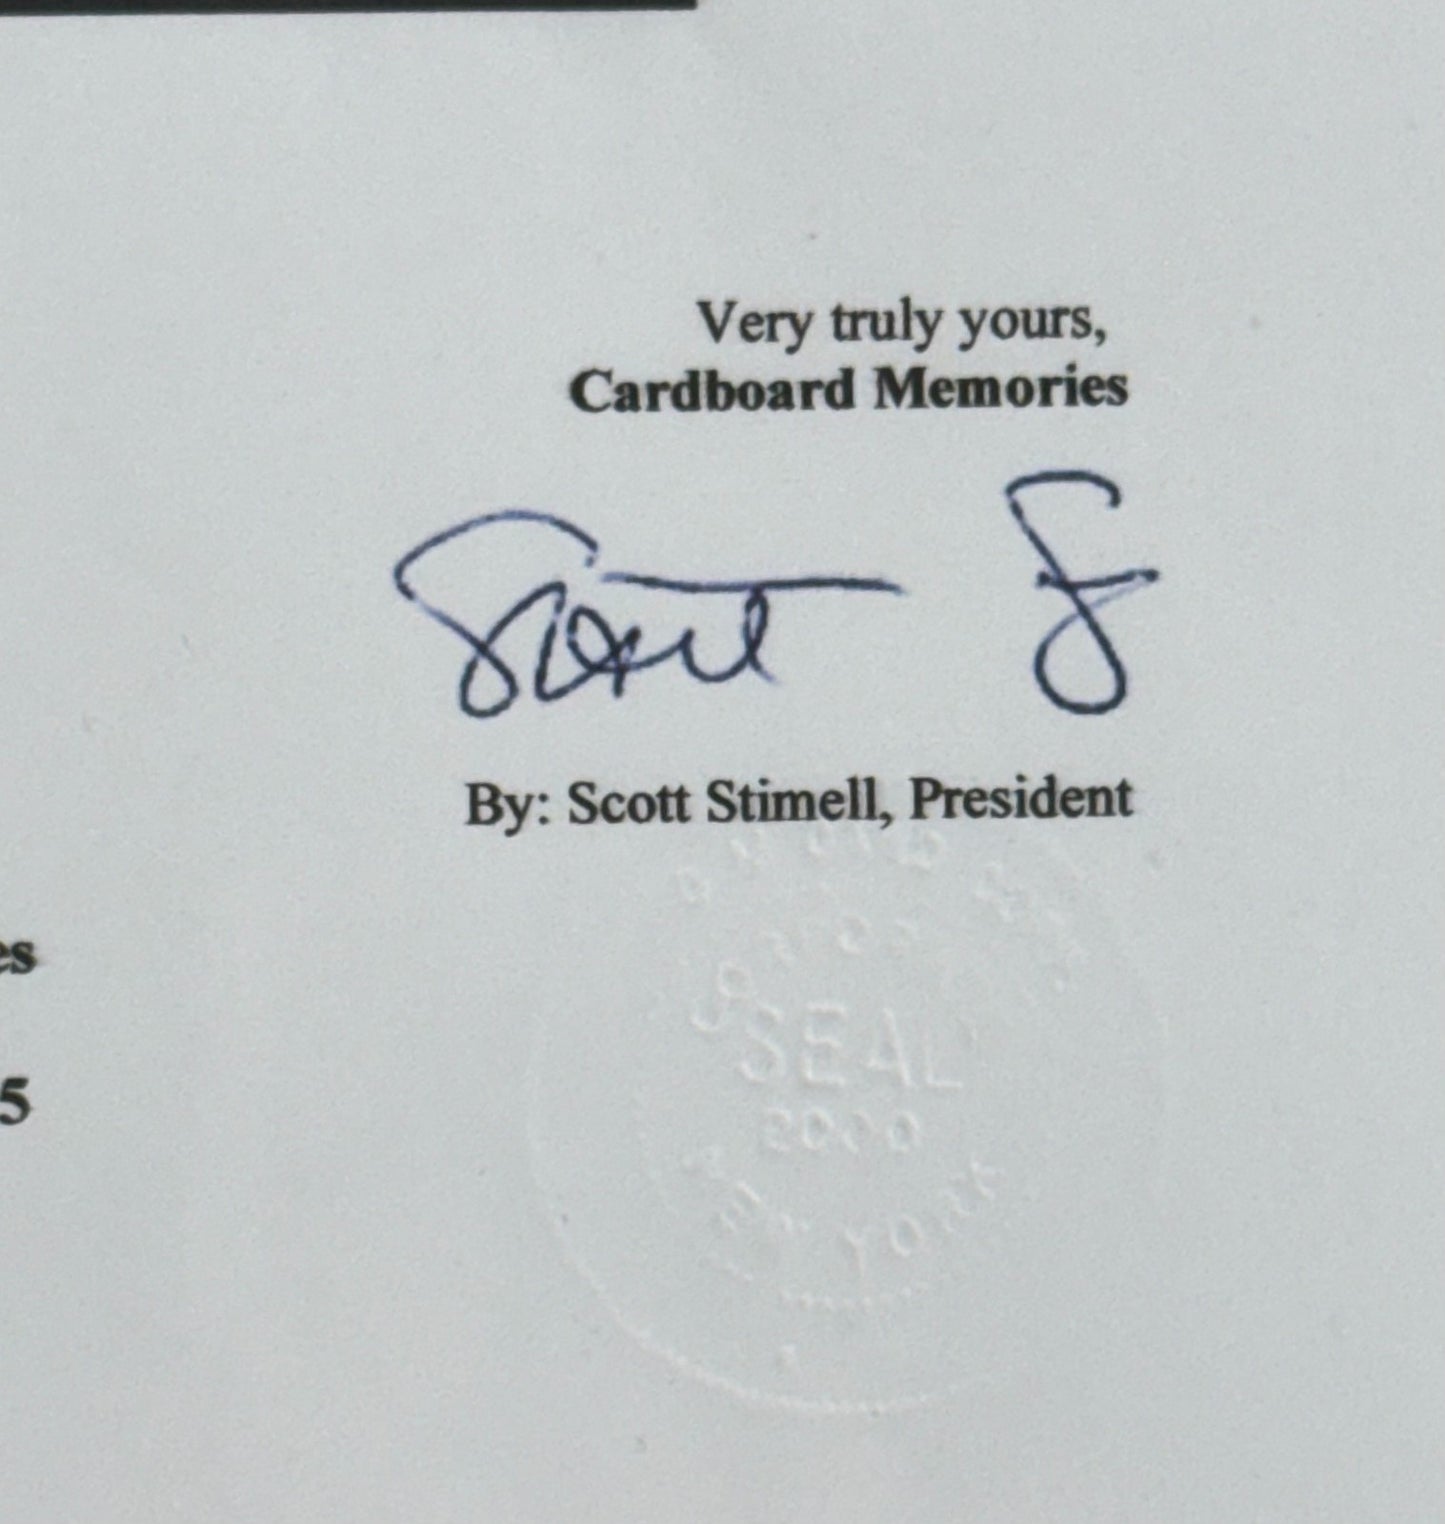 Very truly yours,
Cardboard Memories
Scott S
By: Scott Stimell, President
es
SEAL
2000
5
YORK